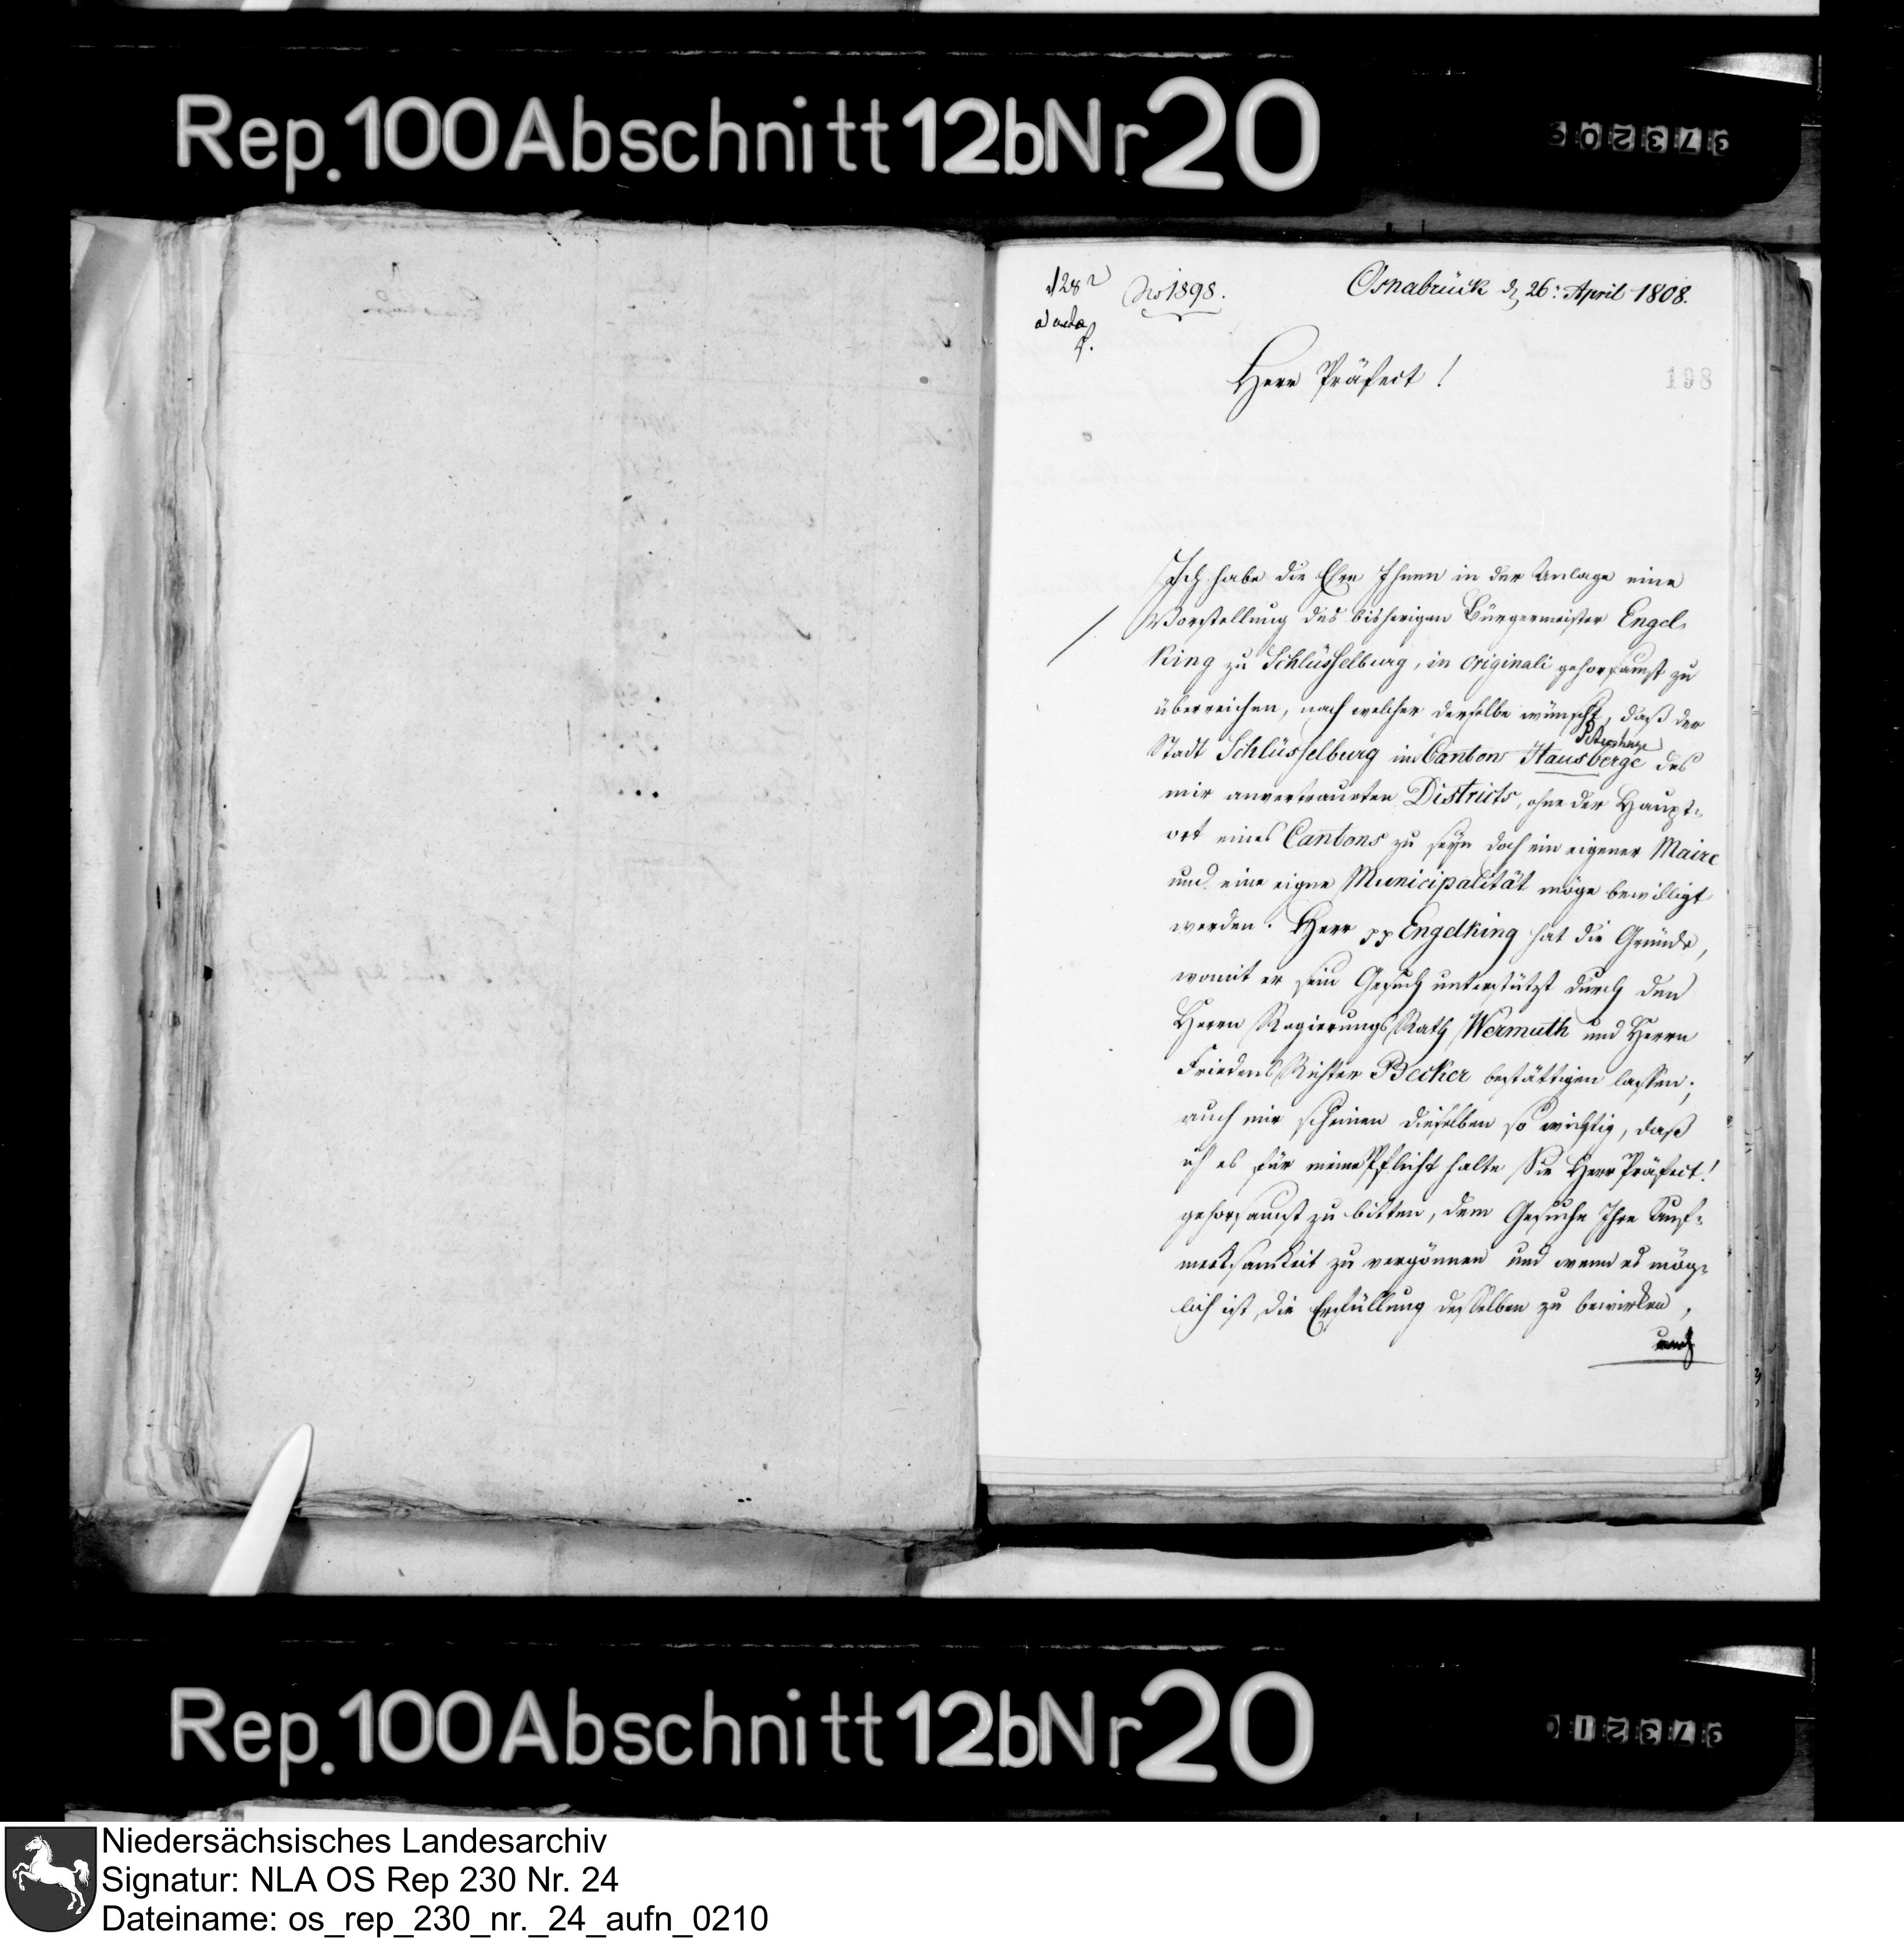 Rep. 100 Abschnitt 12b Nr 20
37320
No 1898.
Osnabrück d. 26. April 1808.
ad acta
Herr Präfect!
198
Ich habe die Ehre Ihnen in der Anlage eine
Vorstellung des bisherigen Bürgermeister Engel-
king zu Schlüsselburg, in originali gehorsamst zu
überreichen, nach welcher derselbe wünscht, daß der
Petershage
Stadt Schlüsselburg im Canton Hausberge des
mir anvertraueten Districts, ohne der Haupt-
ort eines Cantons zu seyn doch ein eigener Maire
und eine eigne Municipalität möge bewilligt
werden. Herr pp Engelking hat die Gründe,
womit er sein Gesuch unterstützt durch den
Herrn Regierungs Rath Wermuth und Herrn
Friedens Richter Becker bestättigen lassen;
auch mir scheinen dieselben so wichtig, daß
ich es für meine Pflicht halte Sie Herr Präfect!
gehorsamst zu bitten, dem Gesuche Ihre Auf-
merksamkeit zu vergönnen und wenn es mög-
lich ist, die Erfüllung desselben zu bewirken,
Rep. 100 Abschnitt 12b Nr 20
37321
Niedersächsisches Landesarchiv
Signatur: NLA OS Rep 230 Nr. 24
Dateiname: os_rep_230_nr._24_aufn_0210